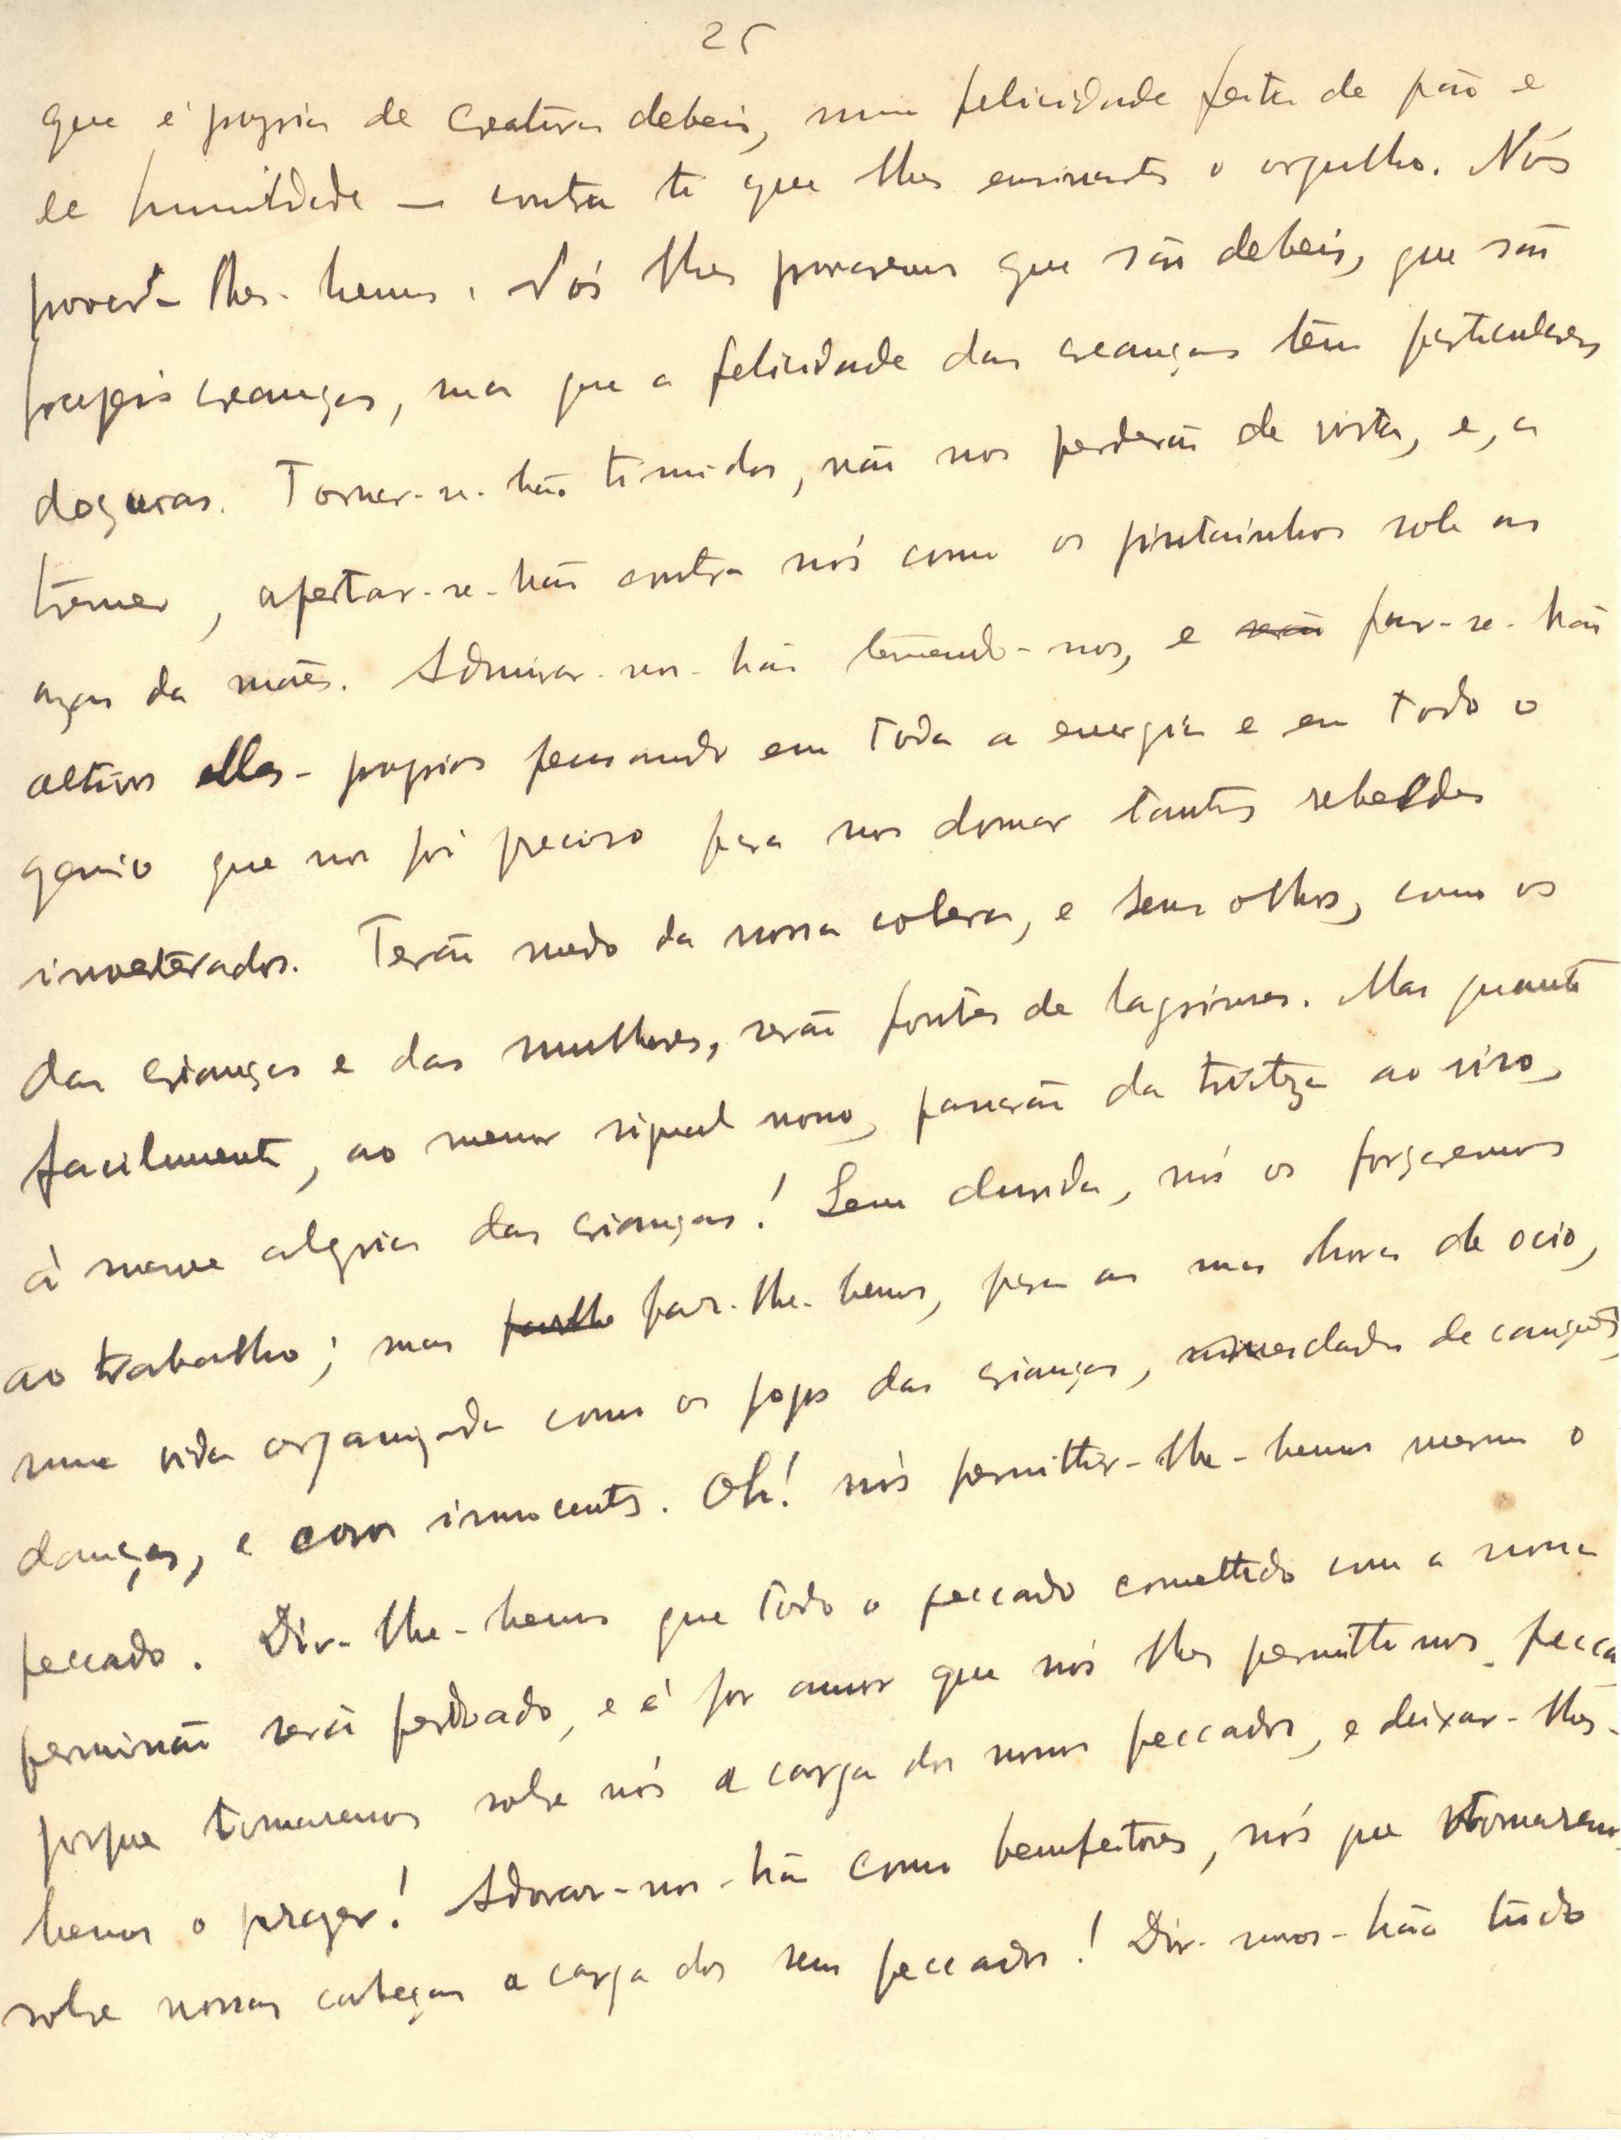 25
que é propria de creaturas debeis, uma felicidade feita de pão e
de humildade — contra ti que lhes ensinaste o orgulho. Nós
provar-lhes-hemos. Nós lhes provaremos que são debeis, que são
frageis creanças, mas que a felicidade das creanças têm particulares
doçuras. Tornar-se-hão timidos, não nos perderão de vista, e, a
tremer, apertar-se-hão contra nós como os pintainhos sob as
azas da mãe. Admirar-nos-hão temendo-nos, e serão far-se-hão
altivos elles-proprios pensando em toda a energia e em todo o
genio que nos foi preciso para nos domar tantos rebeldes
inveterados. Terão medo da nossa colera, e seus olhos, como os
das crianças e das mulheres, serão fontes de lagrimas. Mas quanto
facilmente, ao menor signal nosso, passarão da tristeza ao riso,
á suave alegria das crianças! Sem duvida, nós os forçaremos
ao trabalho; mas far-lhe-hemos, para as suas horas de ocio,
uma vida organizada como os jogos das crianças, de canções,
danças, e coros innocentes. Oh! nós permittir-lhe-hemos mesmo o
peccado. Dir-lhe-hemos que todo o peccado comettido com a nossa
permissão será perdoado, e é por amor que nós lhes permittimos pecca
porque tomaremos sobre nós a carga dos nossos peccados, e deixar-lhes-
hemos o prazer! Adorar-nos-hão como bemfeitores, nós que tomaremos
sobre nossas cabeças a carga dos seus peccados! Dir-nos-hão tudo